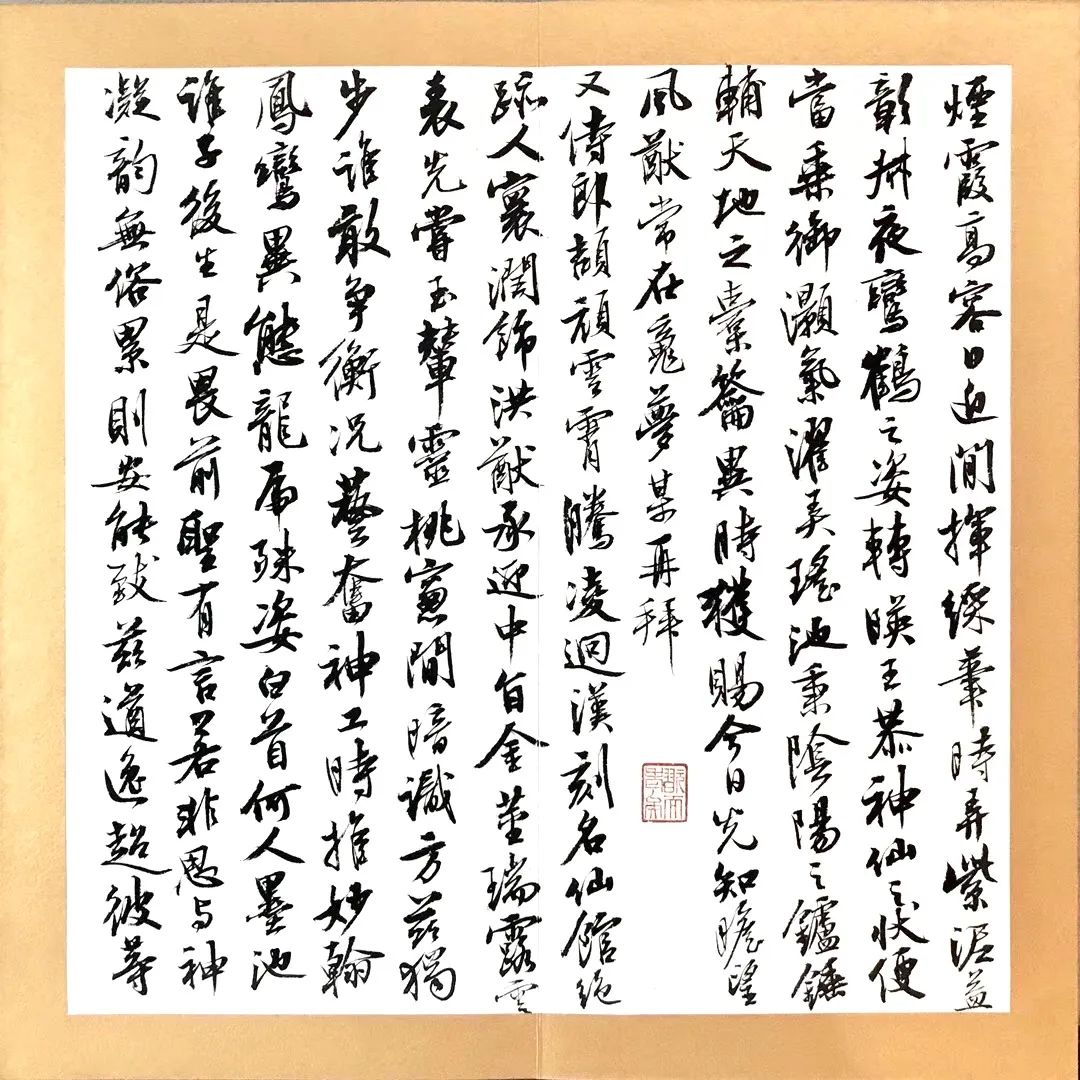 煙霞高容日迫閒揮綵筆時弄紫泥益
彰叔夜鸞鶴之姿轉暎王恭神仙之狀便
當乘御灝氣濯弄瑤池秉陰陽之鑪錘
輔天地之橐籥異時獲賜今日先知瞻望
風猷常在寤夢某再拜
又侍郎頡頏雲霄騰凌迥漢刻名仙館絕
跡人寰潤飾洪猷承迎中旨金莖瑞露雲
表先嘗玉輦靈桃窻間暗識方茲獨
步誰敢爭衡況藝奮神工時推妙翰
鳳鸞異態龍虎殊姿白首何人墨池
誰子後生是畏前聖有言若非思與神
凝韵無俗累則安能致茲遒逸超彼等